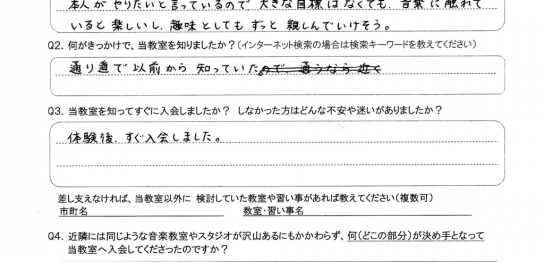 本人がやりたいと言っているので、大きな目標はなくても、音楽に触れて
いると楽しいし、趣味としてもずっと親しんでいけそう。
Q2. 何がきっかけで、当教室を知りましたか？(インターネット検索の場合は検索キーワードを教えてください)
通り道で以前から知っていたので 通うなら近く
Q3. 当教室を知ってすぐに入会しましたか？ しなかった方はどんな不安や迷いがありましたか？
体験後、すぐ入会しました。
差し支えなければ、当教室以外に 検討していた教室や習い事があれば教えてください(複数可)
市町名 教室・習い事名
Q4. 近隣には同じような音楽教室やスタジオが沢山あるにもかかわらず、何(どこの部分)が決め手となって
当教室へ入会してくださったのですか？